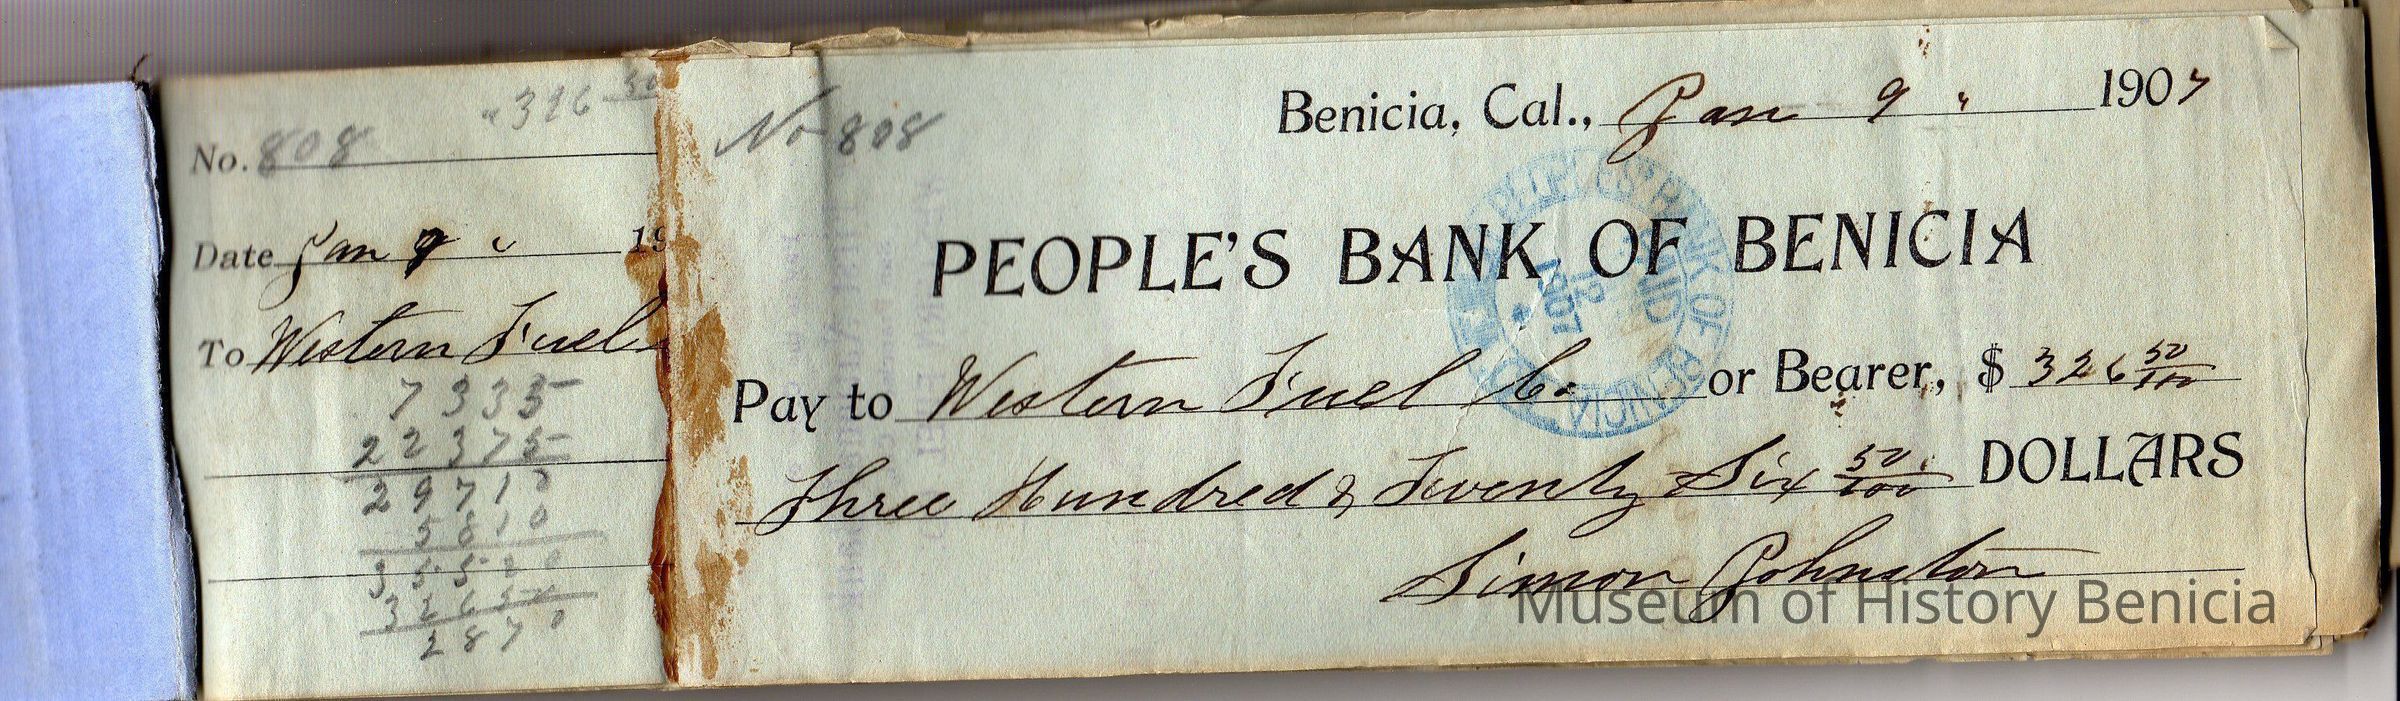 326 50
No. 808
Date Jan 9 19
To Western Fuel
7335
22375
29710
5810
35520
32650
2870
No 808
Benicia, Cal., Jan 9 1907
PEOPLE'S BANK OF BENICIA
PEOPLE'S BANK OF BENICIA
PAID
12
1907
Pay to Western Fuel Co. or Bearer, $ 326 50/100
Three Hundred & Twenty Six 50/100 DOLLARS
Simon Johnston
Museum of History Benicia